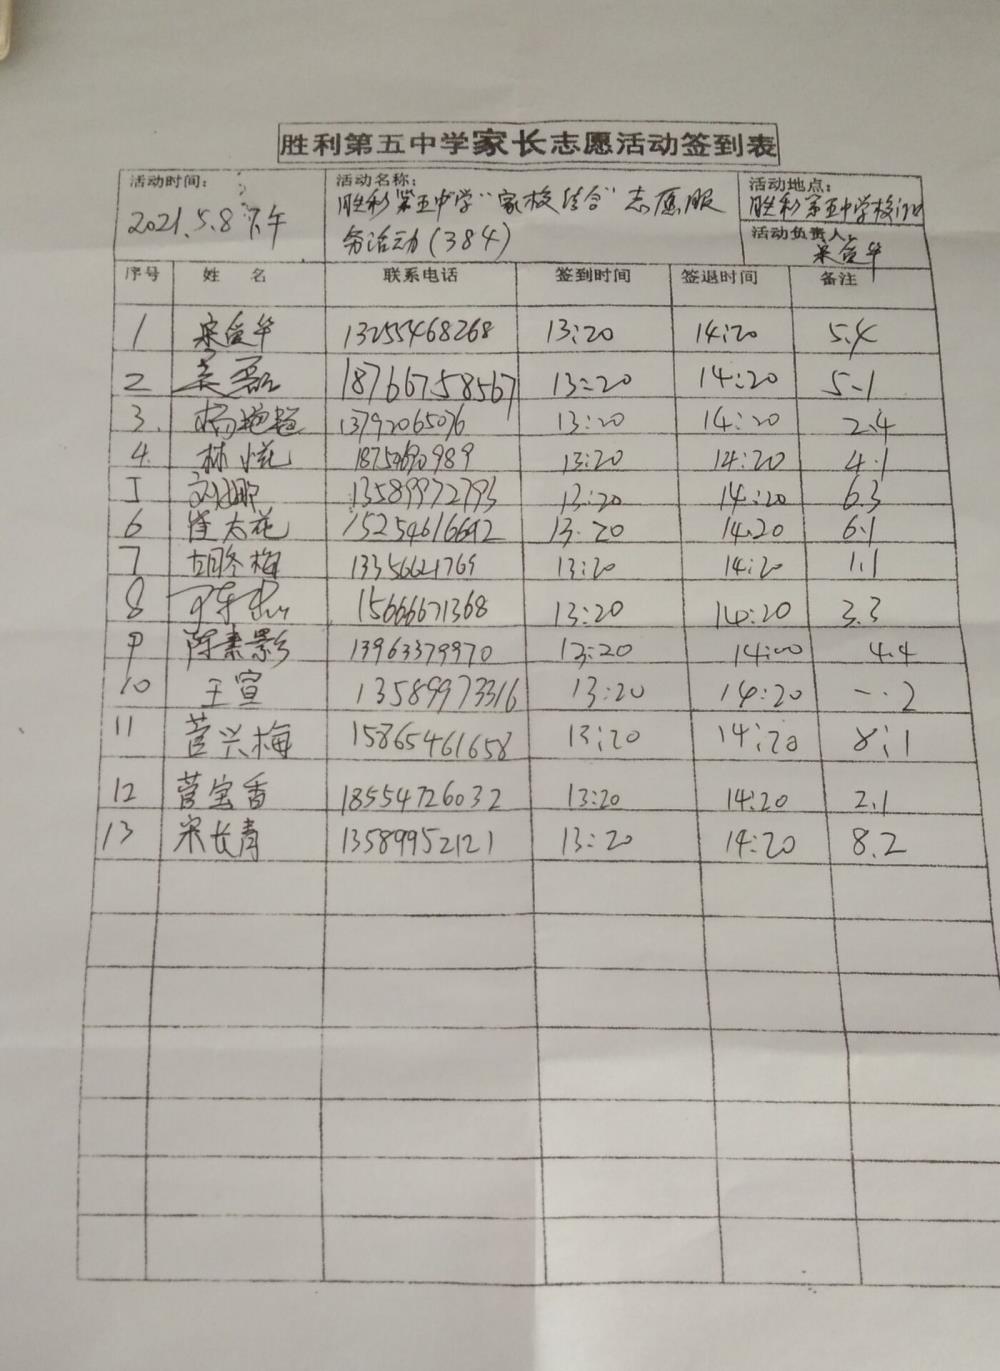 胜利第五中学家长志愿活动签到表
活动时间:
2021.5.8下午
活动名称:
胜利第五中学“家校结合”志愿服
务活动(384)
活动地点:
胜利第五中学校门口
活动负责人:
宋俊华
序号 姓 名 联系电话 签到时间 签退时间 备注
1 宋俊华 13255468268 13:20 14:20 5.4
2 吴磊 18766758567 13:20 14:20 5.1
3. 杨艳超 13792065076 13:20 14:20 2.4
4. 林 13:20 14:20 4.1
5 刘娜 13589972793 13:20 14:20 6.3
6 崔大花 15254616642 13:20 14.20 6.1
7 胡冬梅 13356621769 13:20 14:20 1.1
8 15666671368 13:20 14:20 3.3
9 陈素影 13963379970 13:20 14:00 4.4
10 王宣 13589973316 13:20 14:20 一.2
11 菅兴梅 15865461658 13:20 14:20 8:1
12 菅宝香 18554726032 13:20 14:20 2.1
13 宋长青 13589952121 13:20 14:20 8.2